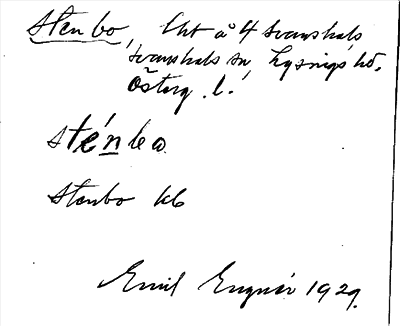 Stenbo, Lht å 4 Svanshals
Svanshals sn, Lysings hd.
Österg. l.
sténbo
Stenbo kb
Emil Engnér 1929.